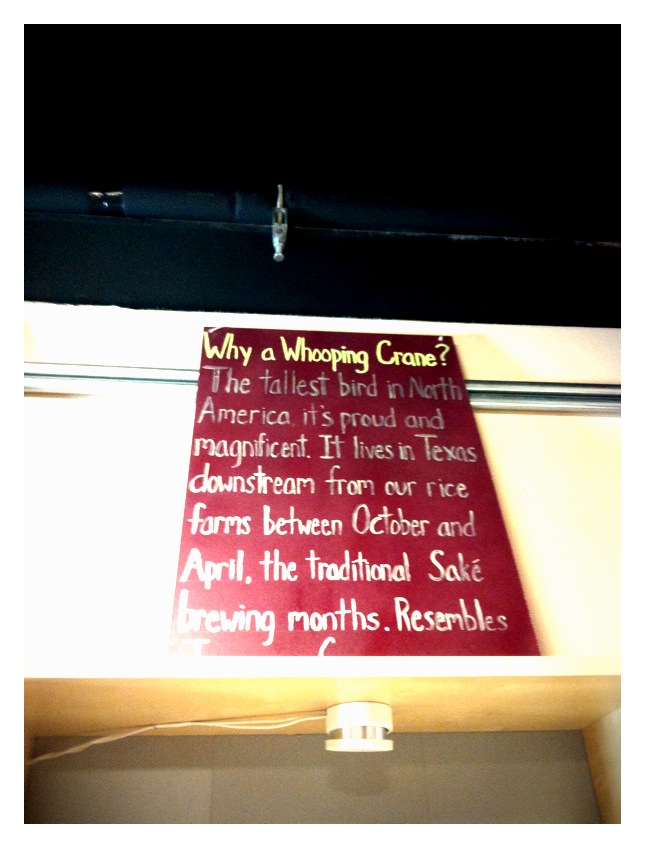 Why a Whooping Crane?
The tallest bird in North
America, it's proud and
magnificent. It lives in Texas
downstream from our rice
farms between October and
April, the traditional Saké
brewing months. Resembles